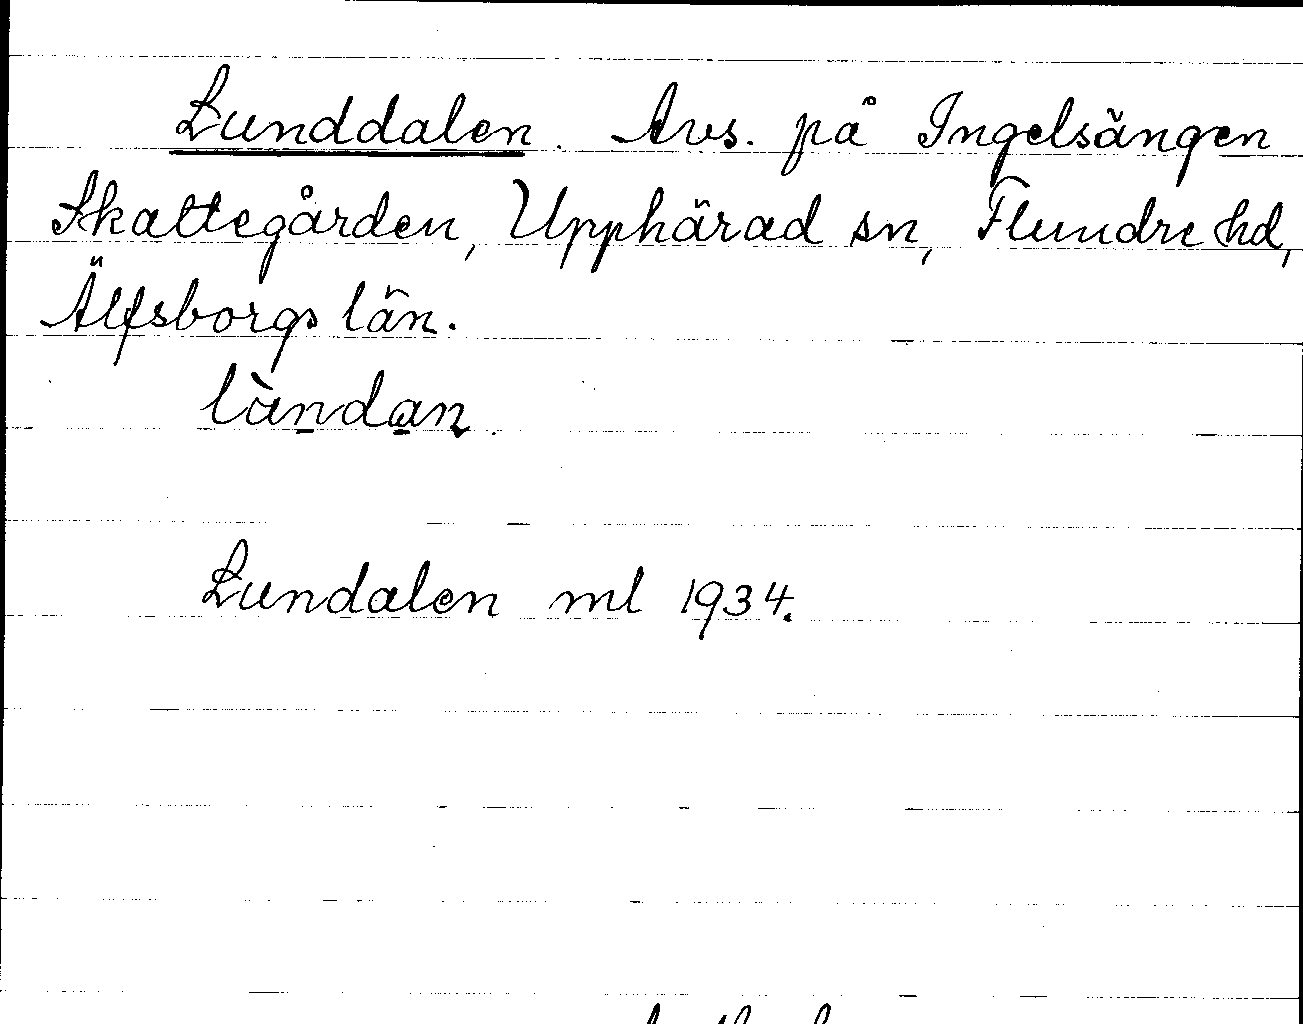 Lunddalen. Avs. på Ingelsängen
Skattegården, Upphärad sn, Flundre hd,
Älfsborgs län.
làndan.
Lundalen ml 1934.